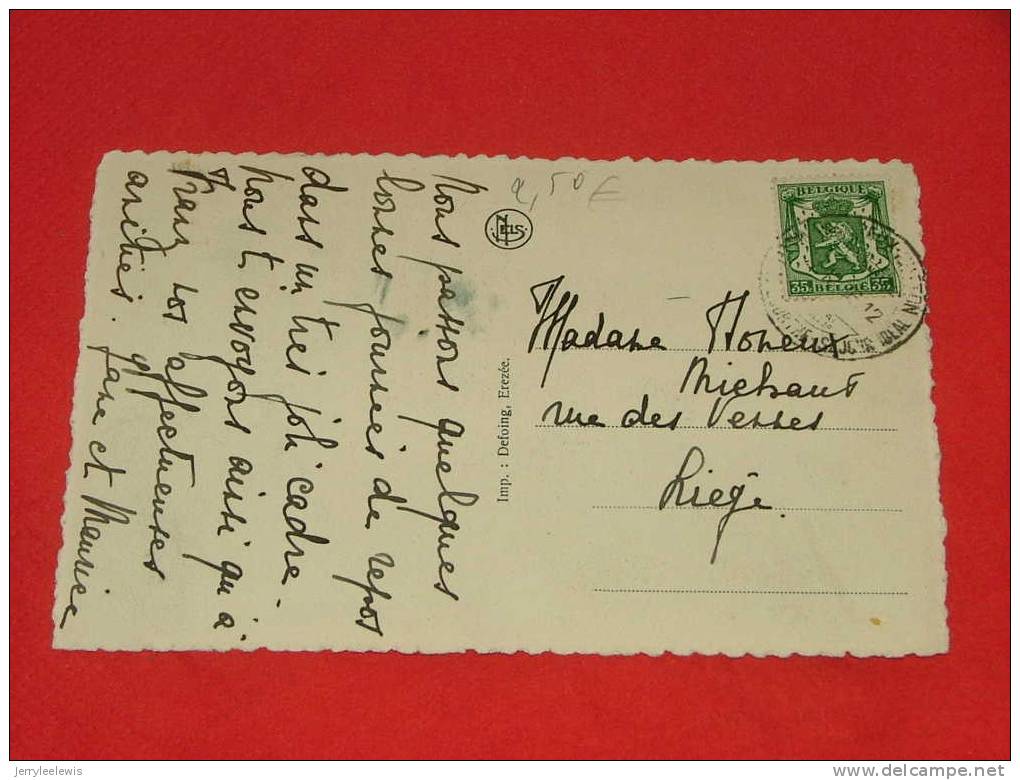 Nous passons quelques
bonnes journées de repos
dans un très joli cadre.
Nous t'envoyons ainsi qu'à
Franz nos affectueuses
amitiés.
et Maurice
2,50 €
NELS
Imp. : Defoing, Erezée.
BELGIQUE
35 BELGIË 35
12
Madame
rue des
Liège.
jerryleelewis
www.delcampe.net